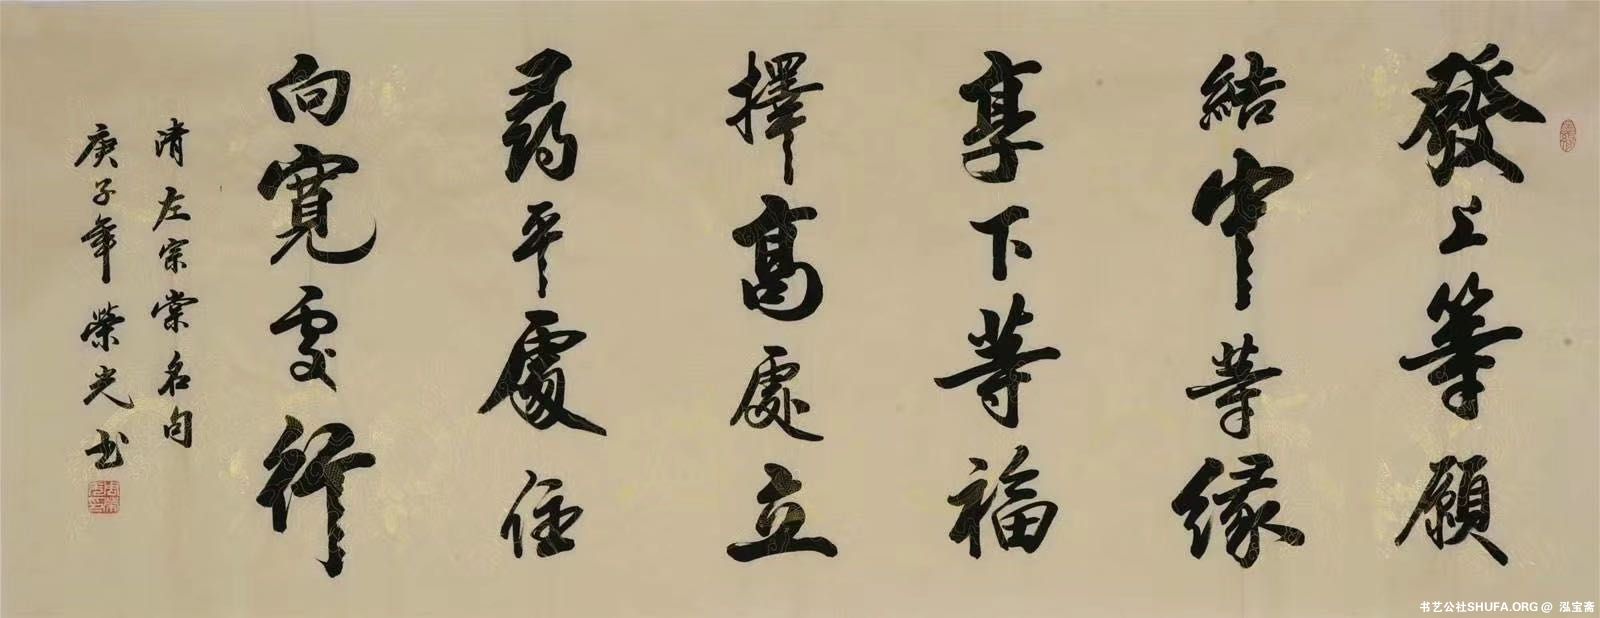 發上等願
結中等緣
享下等福
擇高處立
尋平處住
向寬處行
清左宗棠名句
庚子年榮光書
书艺公社SHUFA.ORG @ 泓宝斋